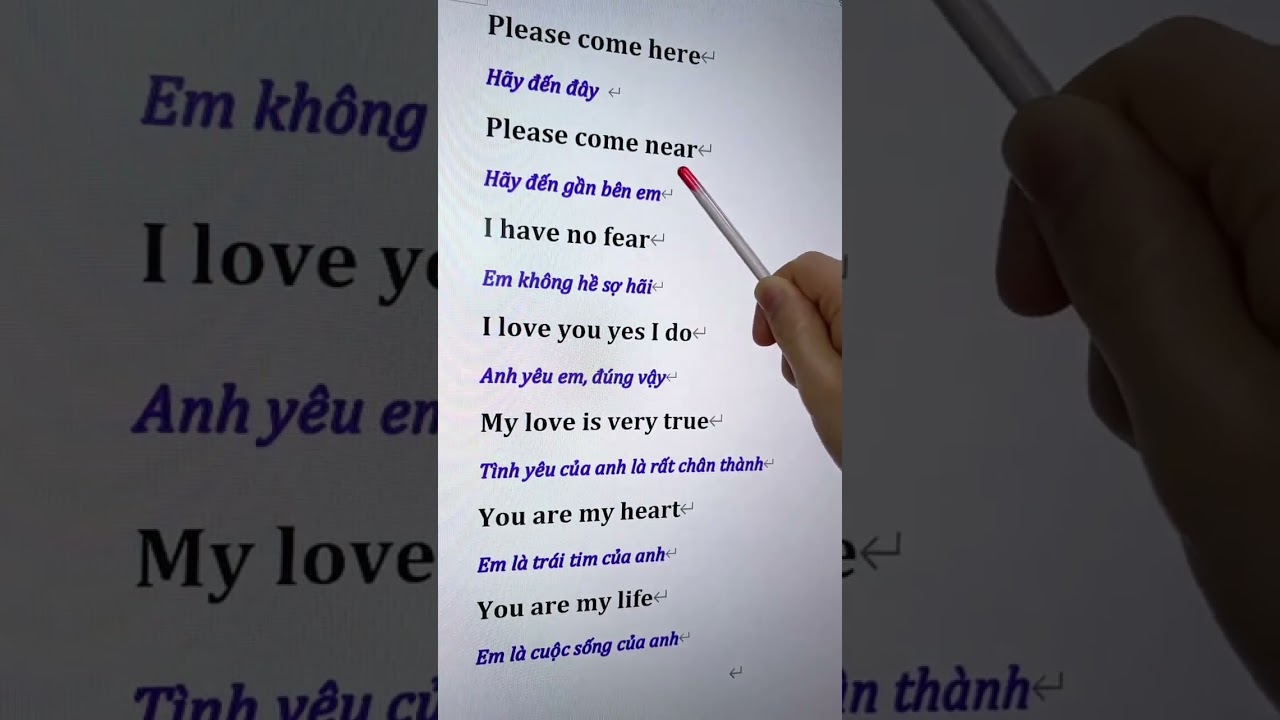 Please come here
Hãy đến đây
Please come near
Hãy đến gần bên em
I have no fear
Em không hề sợ hãi
I love you yes I do
Anh yêu em, đúng vậy
My love is very true
Tình yêu của anh là rất chân thành
You are my heart
Em là trái tim của anh
You are my life
Em là cuộc sống của anh